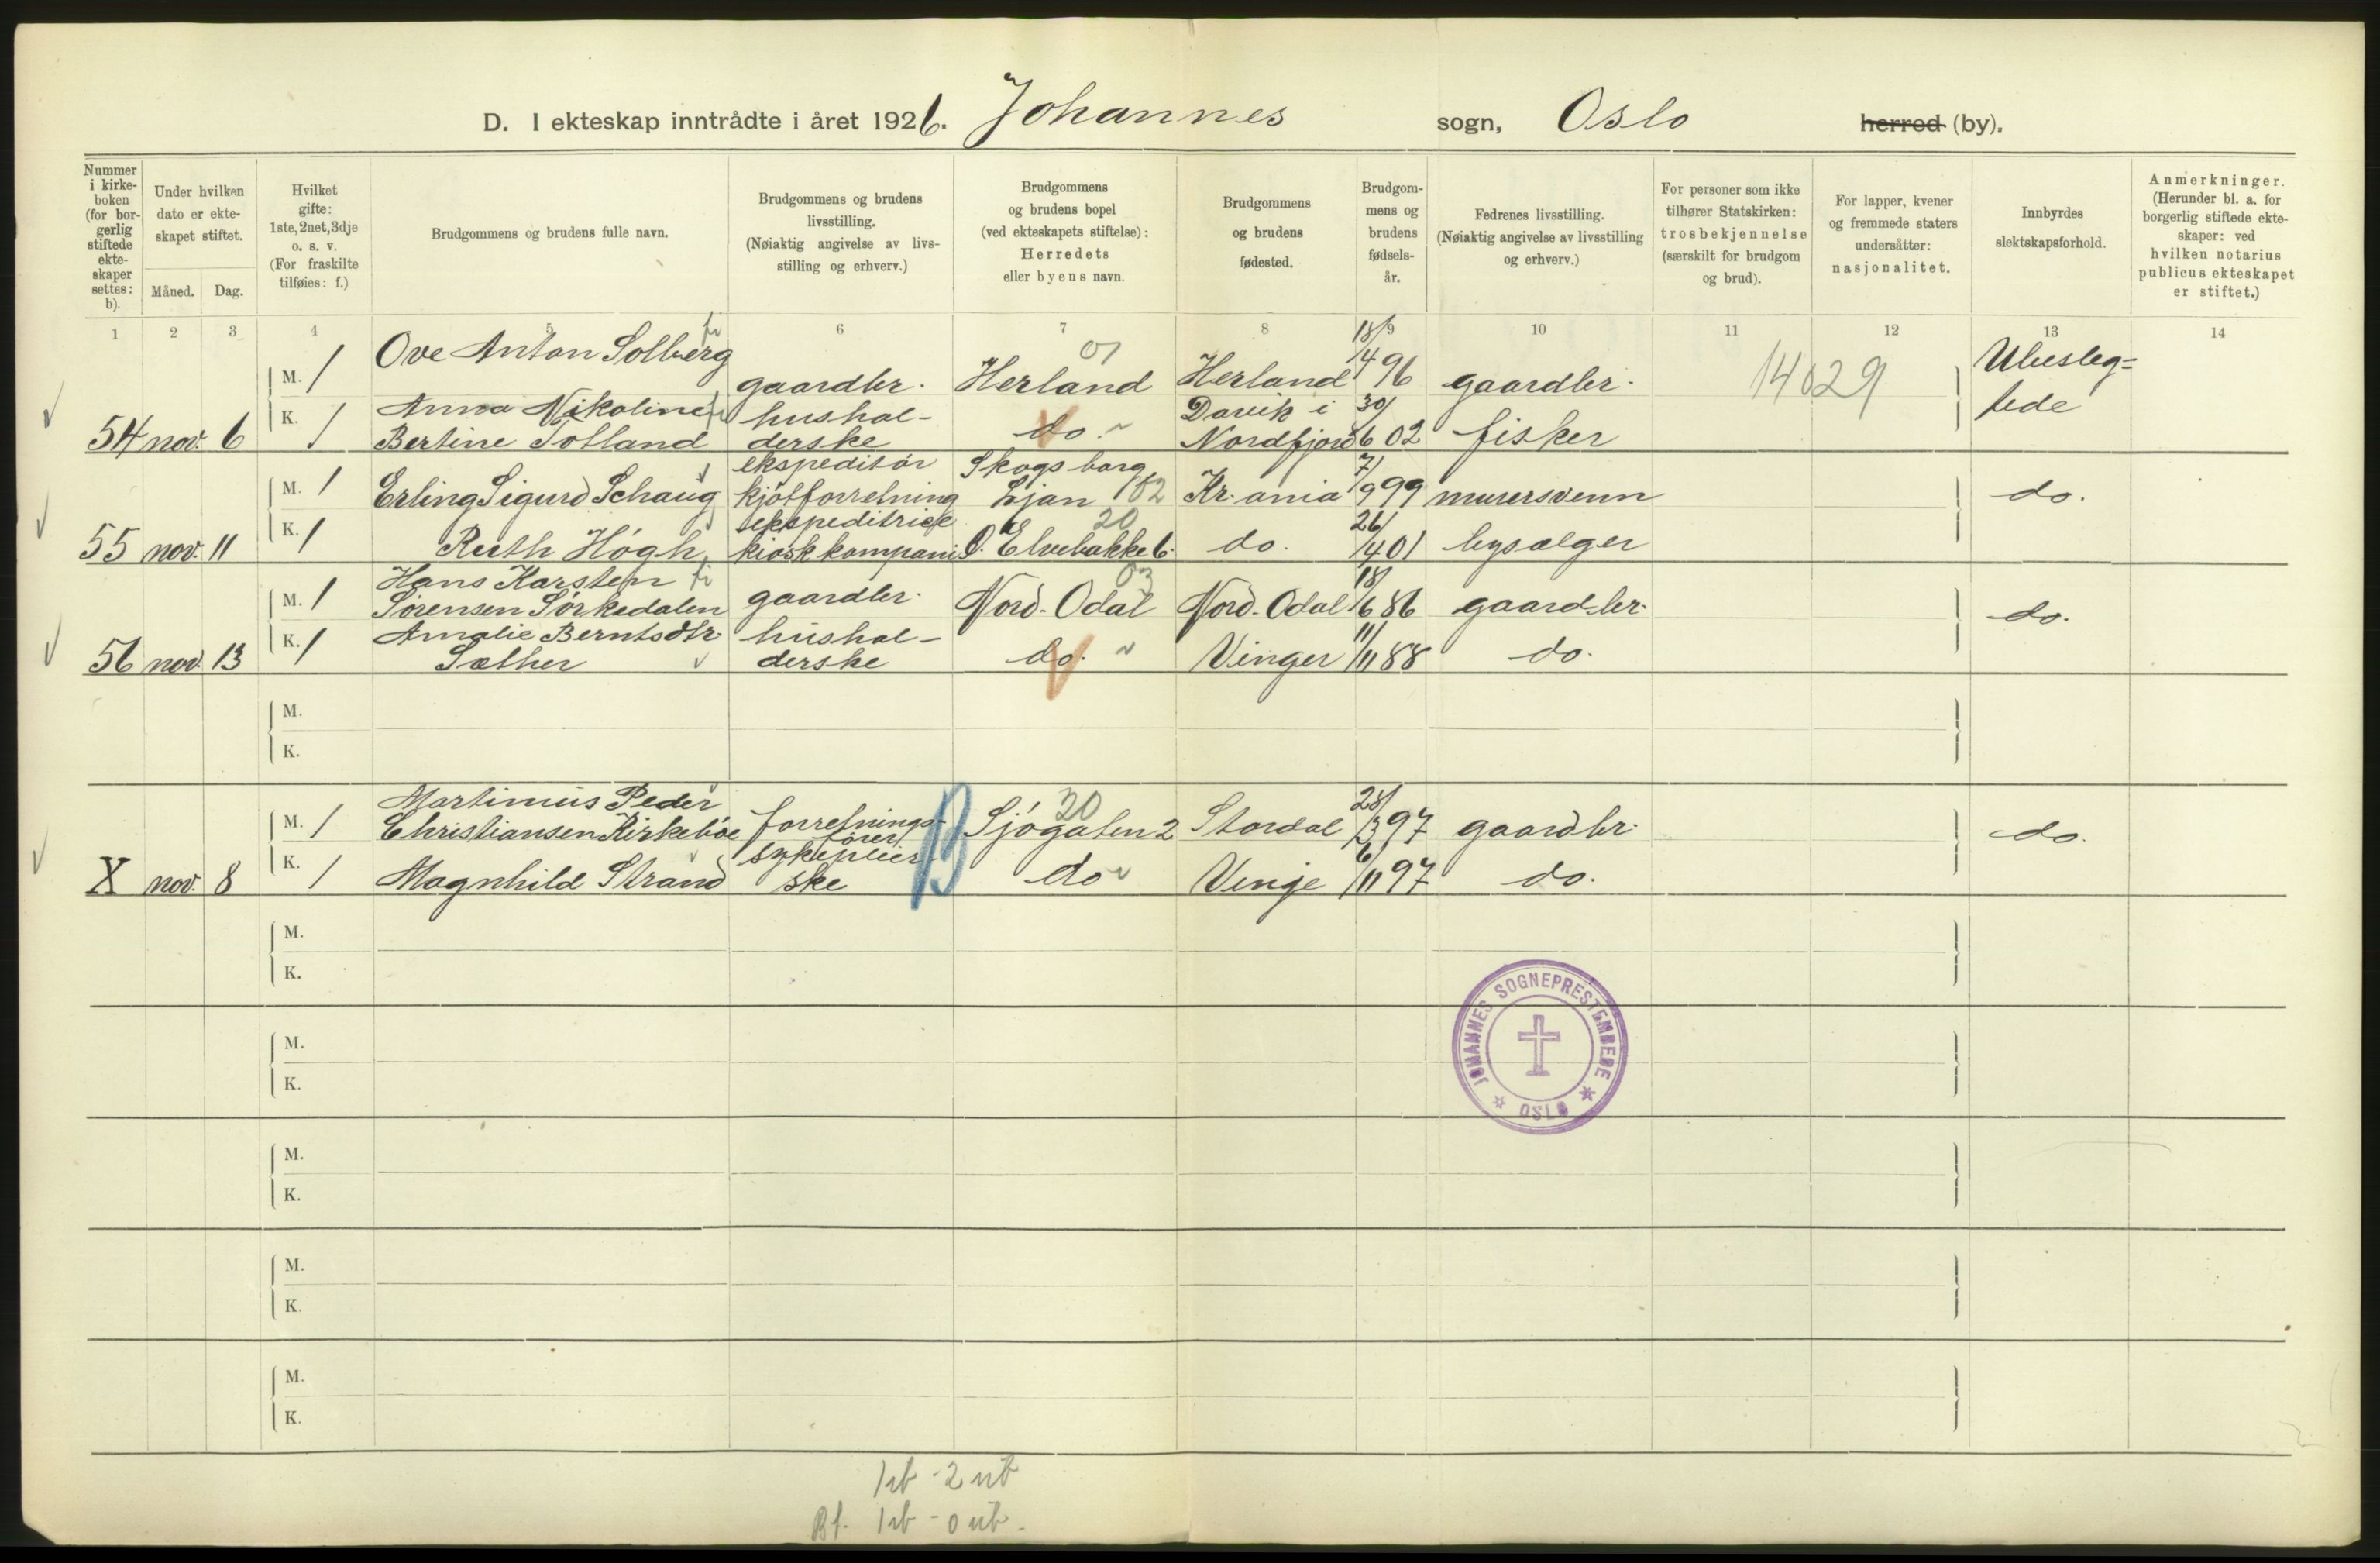 D. I ekteskap inntrådte i året 1926. Johannes sogn, Oslo herred (by).
Nummer i kirke-boken (for bor-gerlig stiftede ekte-skaper settes: b).
Under hvilken dato er ekte-skapet stiftet.
Måned. Dag.
Hvilket gifte: 1ste, 2net, 3dje o. s. v. (For fraskilte tilføies: f.)
Brudgommens og brudens fulle navn.
Brudgommens og brudens livsstilling. (Nøiaktig angivelse av livs-stilling og erhverv.)
Brudgommens og brudens bopel (ved ekteskapets stiftelse): Herredets eller byens navn.
Brudgommens og brudens fødested.
Brudgom-mens og brudens fødsels-år.
Fedrenes livsstilling. (Nøiaktig angivelse av livsstilling og erhverv.)
For personer som ikke tilhører Statskirken: trosbekjennelse (særskilt for brudgom og brud).
For lapper, kvener og fremmede staters undersåtter: nasjonalitet.
Innbyrdes slektskapsforhold.
Anmerkninger. (Herunder bl. a. for borgerlig stiftede ekte-skaper: ved hvilken notarius publicus ekteskapet er stiftet.)
1 2 3 4 5 6 7 8 9 10 11 12 13 14
M. 1 Ove Anton Solberg gaardbr. Herland 01 Herland 18/4 96 gaardbr. 14029 Ubesleg=tede
54 nov. 6 K. 1 Anna Nikoline Bertine Totland hushol-derske do. Davik i Nordfjord 30/6 02 fisker
M. 1 Erling Sigurd Schaug ekspeditør kjøtforretning Skogsborg Ljan 02 Kr.ania 7/9 99 murersvenn do.
55 nov. 11 K. 1 Ruth Høgh ekspeditrise kioskkompani Ø. Elvebakke 6. 20 do. 26/4 01 bysælger
M. 1 Hans Karsten Sørensen Sørkedalen gaardbr. Nord-Odal 03 Nord-Odal 18/6 86 gaardbr. do.
56 nov. 13 K. 1 Amalie Berntsdtr. Sæther hushol-derske do. Vinger 11/11 88 do.
M.
K.
M. 1 Martinius Peder Christiansen Kirkebøe forretnings-fører B Sjøgaten 2 20 Stordal 28/3 97 gaardbr. do.
X nov. 8 K. 1 Magnhild Strand sykepleier-ske do Vinje 6/11 97 do.
M.
K.
JOHANNES SOGNEPRESTEMBEDE
OSLO
M.
K.
M.
K.
M.
K.
M.
K.
1 ib - 2 ub
Bf. 1 ib - 0 ub.